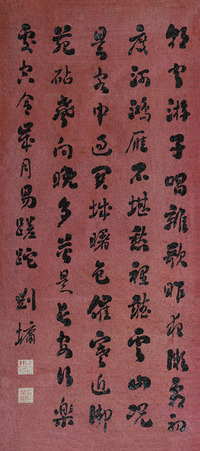 朝聞游子唱離歌昨夜微霜初
度河鴻雁不堪愁裡聽雲山況
是客中過關城曙色催寒近御
苑砧聲向晚多莫是長安行樂
處空令歲月易蹉跎 劉墉